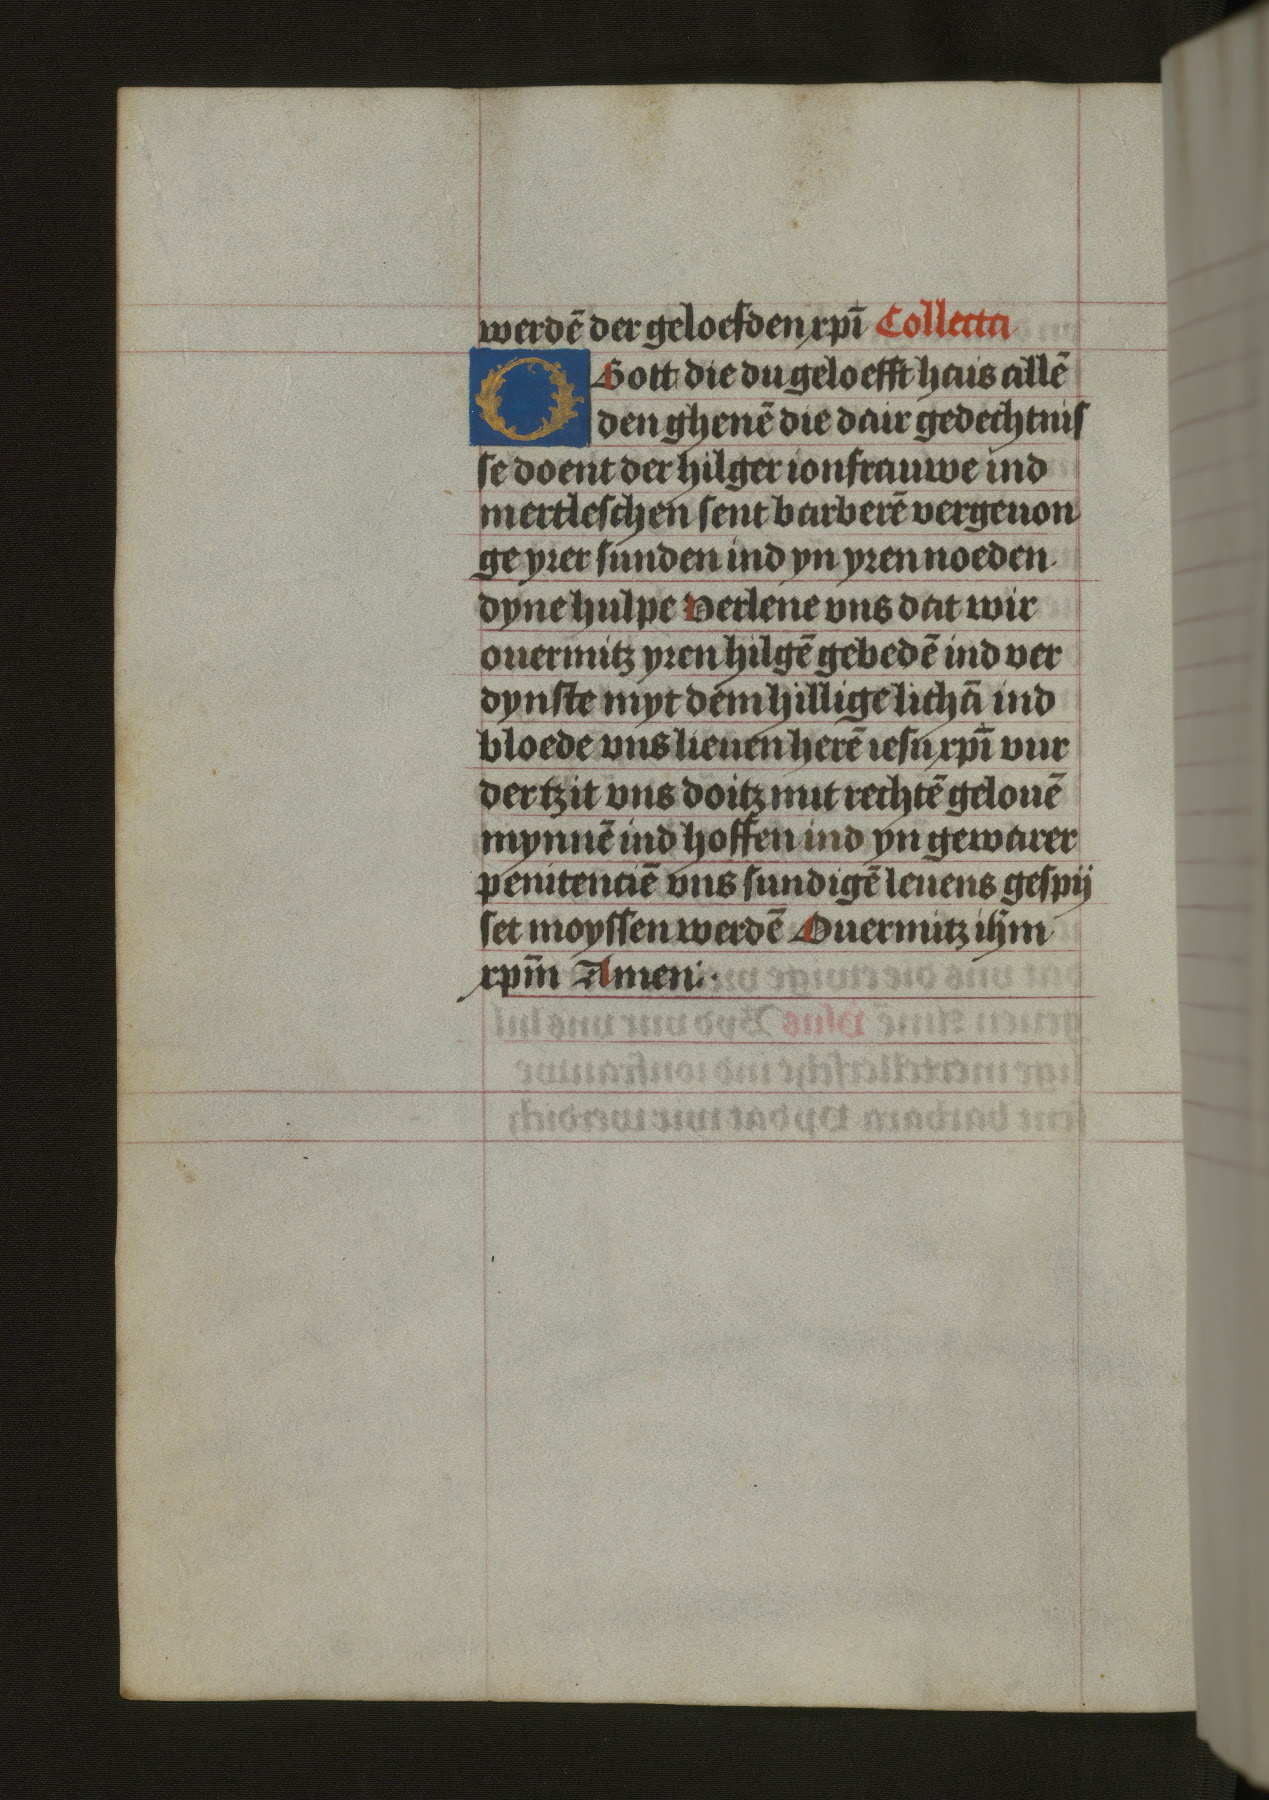 werdē der geloefden xpī Collecta
O Gott die du geloefft hais allē
den ghenē die dair gedechtnis
se doent der hilger ionfrauwe ind
mertleschen sent barberē vergeuon
ge yrer sunden ind yn yren noeden
dyne hulpe Verlene vns dat wir
ouermitz yren hilgē gebedē ind ver
dynste myt dem hillige lichā ind
bloede vns lieuen herē iesu xpī vur
der tzit vns doitz mit rechtē gelouē
mynnē ind hoffen ind yn gewarer
penitenciē vns sundigē leuens gespij
set moyssen werdē Ouermitz ihm̄
xpm̄ Amen